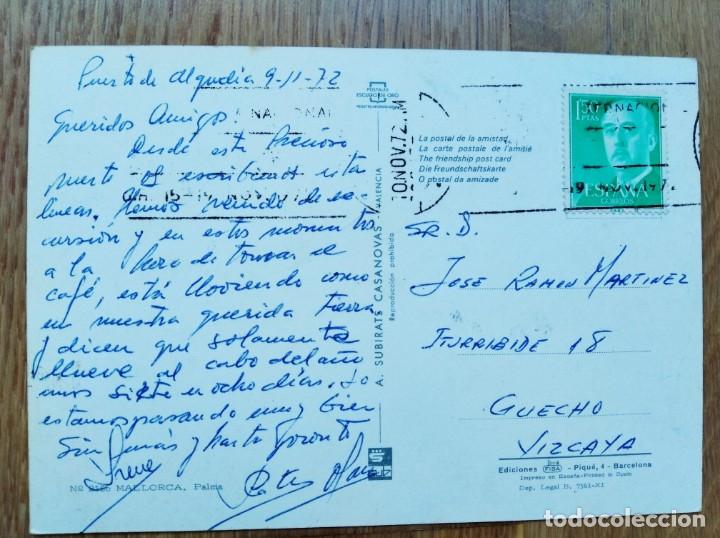 Puerto de Alcudia 9-11-72
Queridos Amigos:
Desde este precioso
puerto os escribimos estas
lineas. Hemos venido de ex
cursión y en estos momentos
a la hora de tomar el
café, está lloviendo como
en nuestra querida tierra
y dicen que solamente
llueve al cabo del año
unos siete u ocho días. Lo
estamos pasando muy bien
Sin más y hasta pronto
Irene
Nº 2155 MALLORCA. Palma
POSTALES
ESCUDO DE ORO
A. SUBIRATS CASANOVAS - VALENCIA
Reproducción prohibida
La postal de la amistad
La carte postale de l'amitié
The friendship post card
Die Freundschaftskarte
O postal da amizade
10 NOV. 72
1,50
PTAS
ESPAÑA
CORREOS
SR. D.
JOSE RAMON MARTINEZ
ITURRIBIDE 18
GUECHO
VIZCAYA
Ediciones FISA - Piqué, 4 - Barcelona
Impreso en España-Printed in Spain
Dep. Legal B. 7561-XI
todocoleccion.net